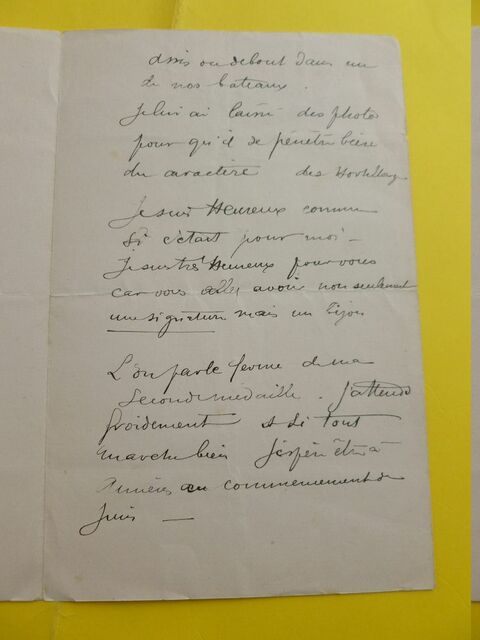 assis ou debout dans un
de nos bateaux.
Je lui ai laissé des photos
pour qu'il se pénètre bien
du caractère des
Je suis Heureux comme
si c'était pour moi -
Je suis très Heureux pour vous
car vous allez avoir non seulement
une signature mais un Bijou
L'on parle ferme de ma
seconde médaille. J'attends
froidement et si tout
marche bien j'espère être à
Asnières au commencement de
Juin —